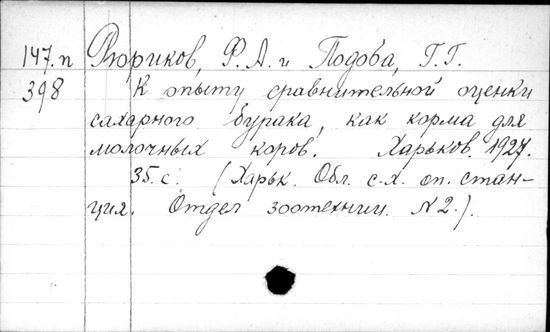 147.п Рюриков, Р. А. и Подоба, Г. Г.
398 К опыту сравнительной оценки
сахарного бурака, как корма для
молочных коров. Харьков. 1927.
35. с. (Харьк. Обл. с. х. оп. стан-
ция. Отдел зоотехнии. N 2.).